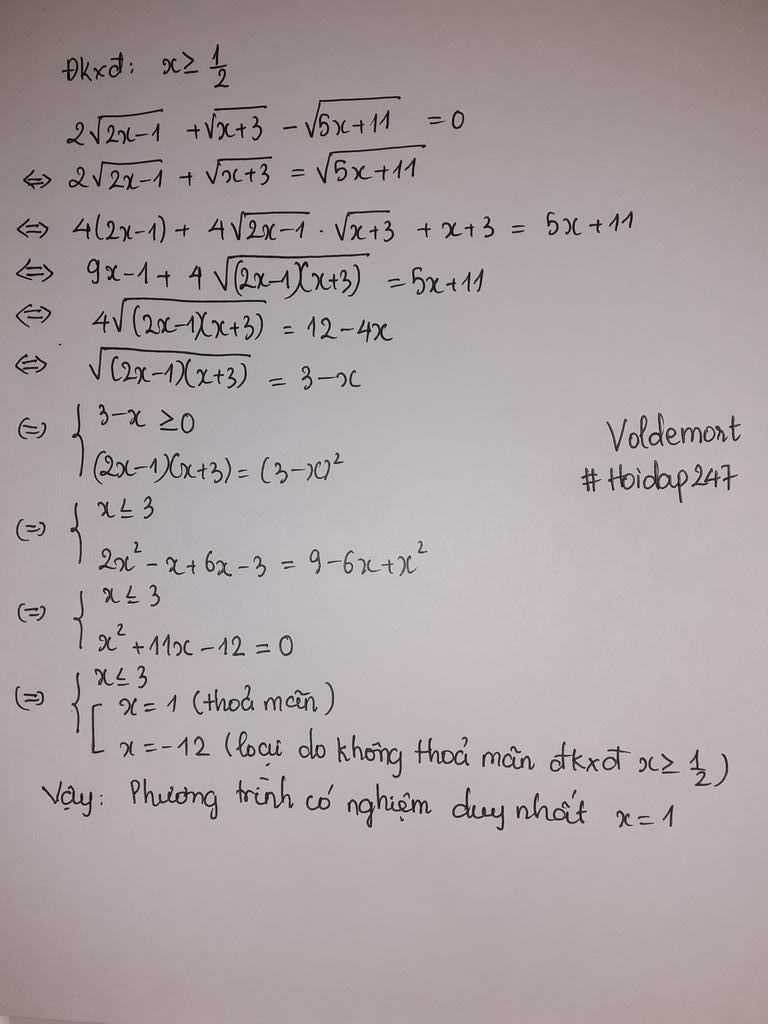 Đkxđ: x ≥ 1/2
2√(2x-1) + √(x+3) - √(5x+11) = 0
⇔ 2√(2x-1) + √(x+3) = √(5x+11)
⇔ 4(2x-1) + 4√(2x-1) . √(x+3) + x+3 = 5x+11
⇔ 9x-1 + 4√((2x-1)(x+3)) = 5x+11
⇔ 4√((2x-1)(x+3)) = 12-4x
⇔ √((2x-1)(x+3)) = 3-x
(=) { 3-x ≥0
(2x-1)(x+3) = (3-x)²
Voldemort
#Hoidap247
(=) { x ≤ 3
2x² - x + 6x - 3 = 9-6x+x²
(=) { x ≤ 3
x² + 11x - 12 = 0
(=) { x ≤ 3
[ x = 1 (thoả mãn)
x = -12 (loại do không thoả mãn đkxđ x ≥ 1/2)
Vậy: Phương trình có nghiệm duy nhất x = 1